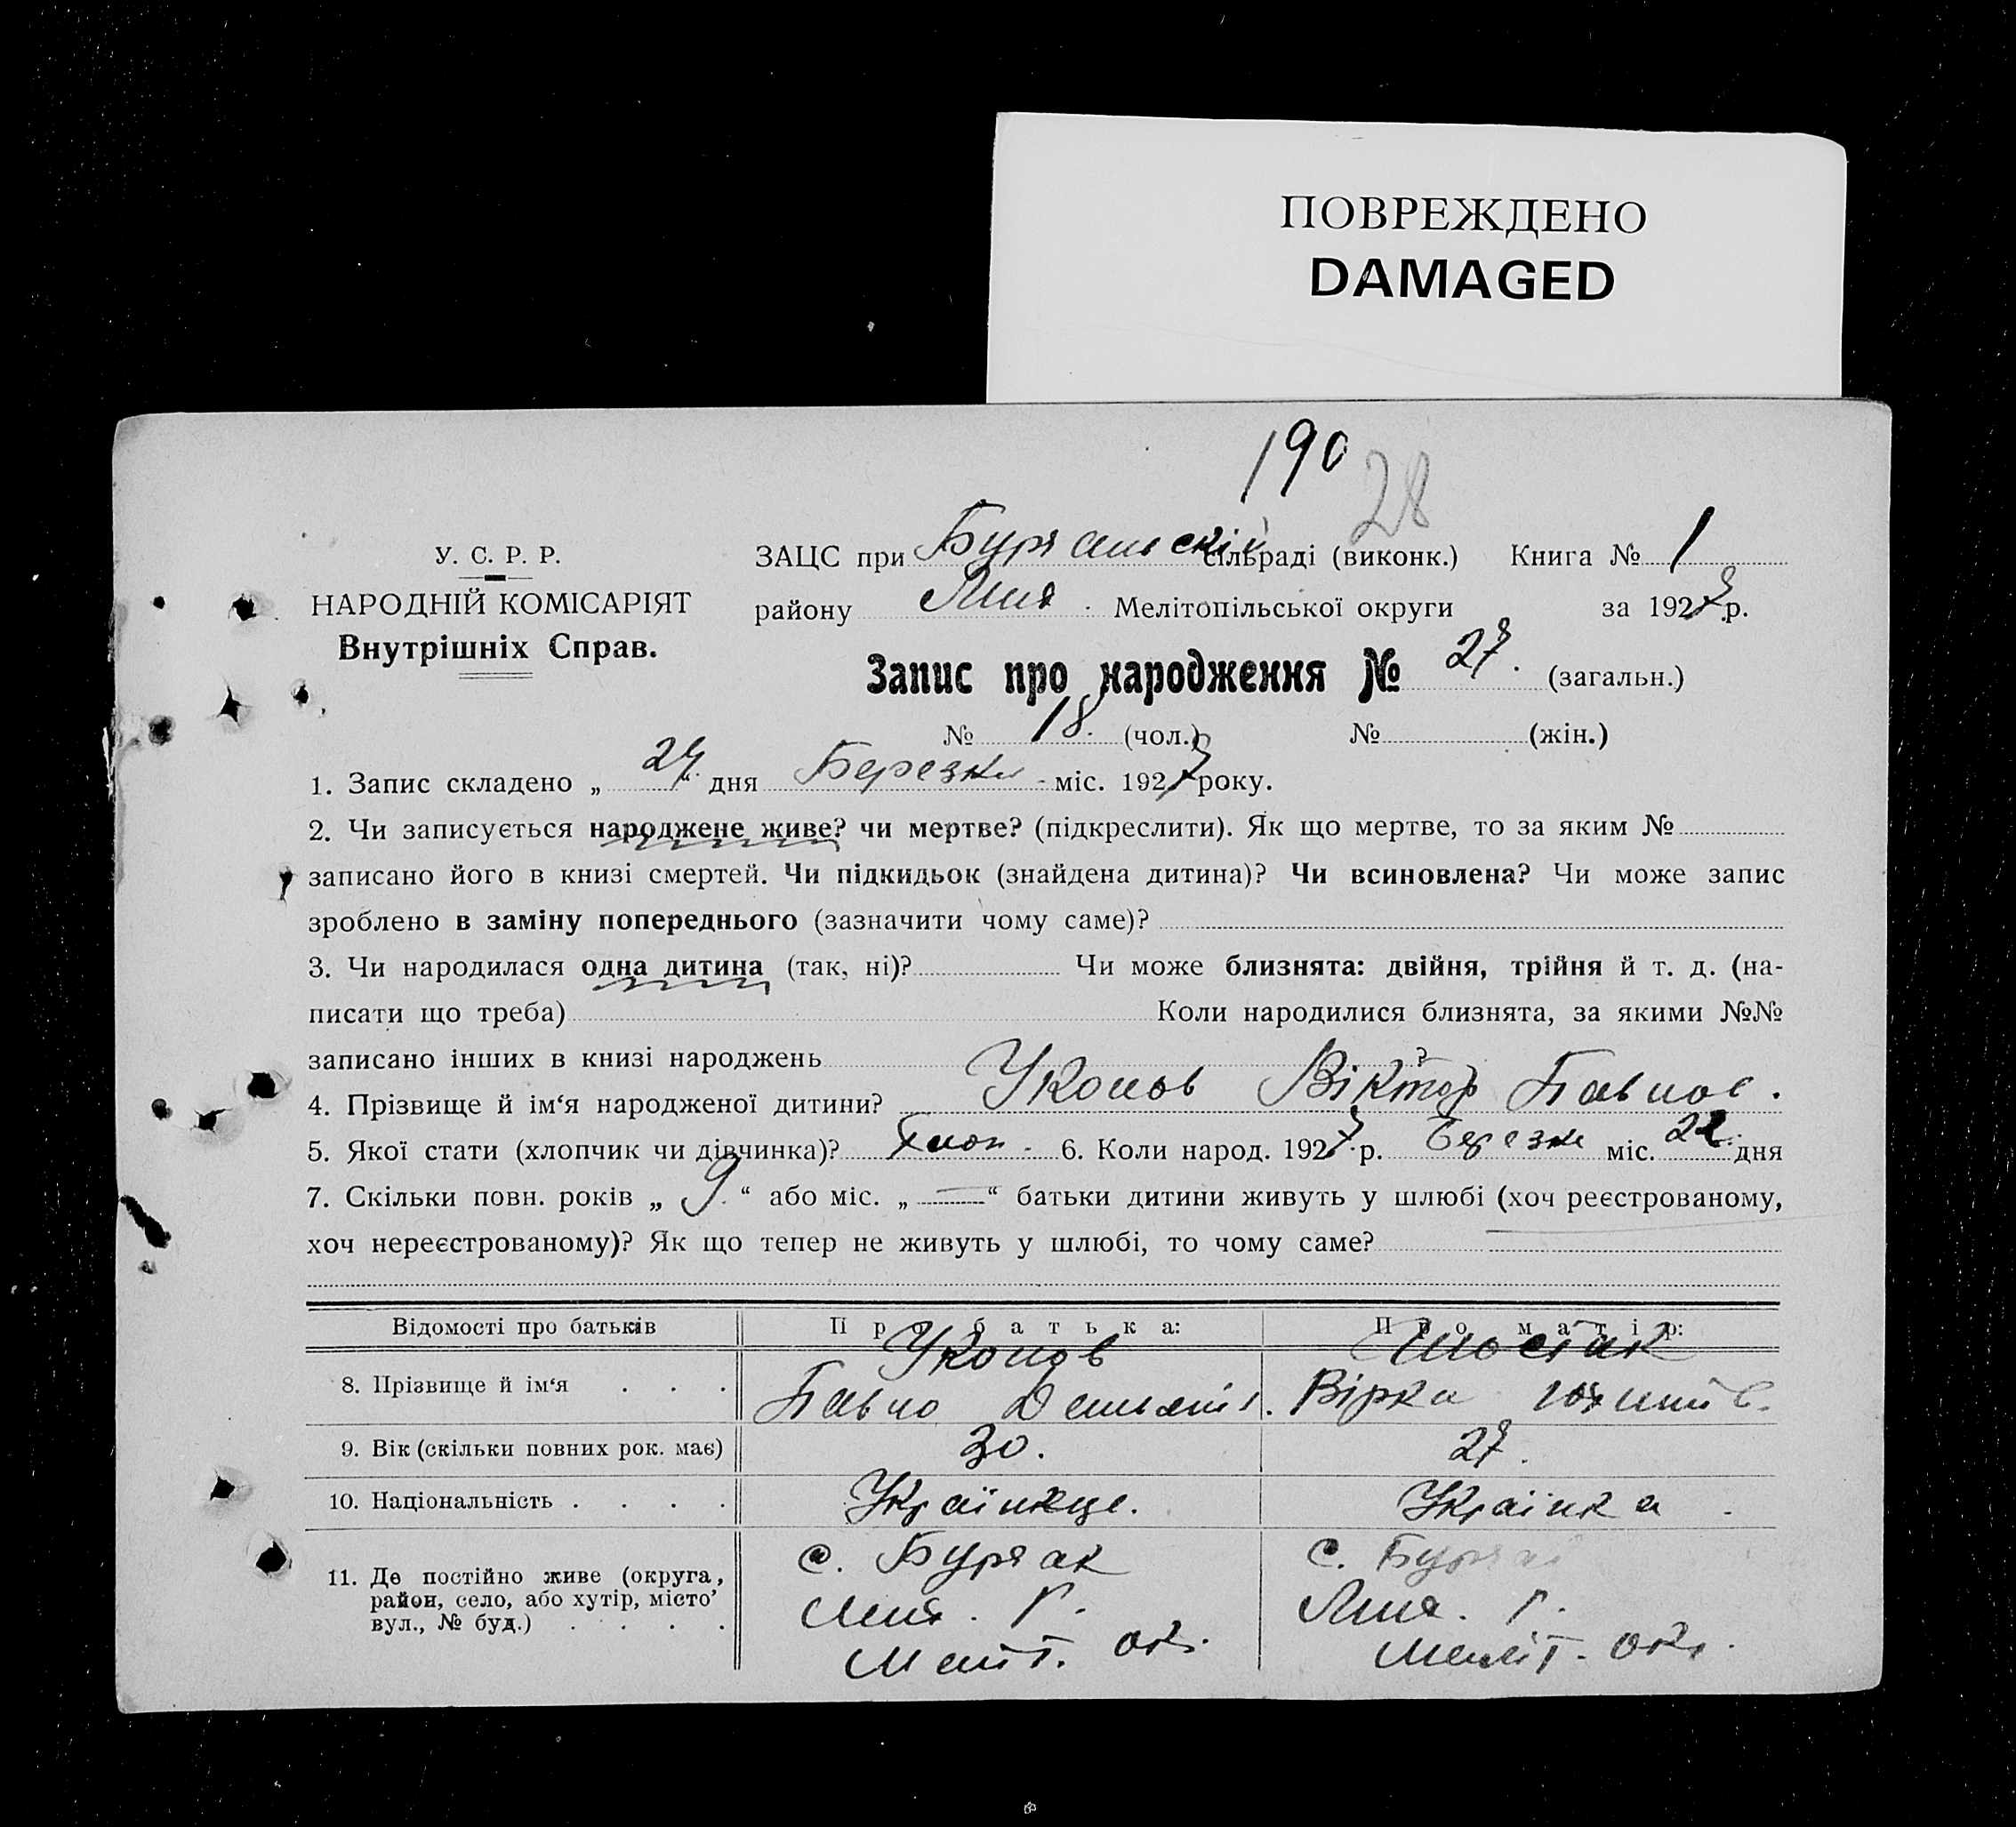 ПОВРЕЖДЕНО
DAMAGED
190
28
У. С. Р. Р.
НАРОДНІЙ КОМІСАРІЯТ
Внутрішніх Справ.
ЗАЦС при сільраді (виконк.) Книга № 1
району Мелітопільської округи за 1927 р.
Запис про народження № 27. (загальн.)
№ 18. (чол.) № (жін.)
1. Запис складено „ 24 “ дня Березня міс. 1927 року.
2. Чи записується народжене живе? чи мертве? (підкреслити). Як що мертве, то за яким №
записано його в книзі смертей. Чи підкидьок (знайдена дитина)? Чи всиновлена? Чи може запис
зроблено в заміну попереднього (зазначити чому саме)?
3. Чи народилася одна дитина (так, ні)? Чи може близнята: двійня, трійня й т. д. (на-
писати що треба) Коли народилися близнята, за якими №№
записано інших в книзі народжень ?
4. Прізвище й ім‘я народженої дитини? Віктор Павлов.
5. Якої стати (хлопчик чи дівчинка)? Хлоп. 6. Коли народ. 1927 р. Березня міс. 22 дня
7. Скільки повн. років „ 9 “ або міс. „ — “ батьки дитини живуть у шлюбі (хоч реєстрованому,
хоч нереєстрованому)? Як що тепер не живуть у шлюбі, то чому саме?
Відомості про батьків Про батька: Про матір:
8. Прізвище й ім‘я . . . Павло Шостак Вірка
9. Вік (скільки повних рок. має) 30. 27.
10. Національність . . . . Українка
11. Де постійно живе (округа, район, село, або хутір, місто’ вул., № буд.) . . . .
с. Буряк с.
Р. Р.
Меліт. окр. Меліт. окр.